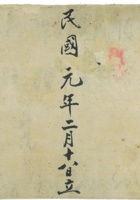 民國元年二月十八日立